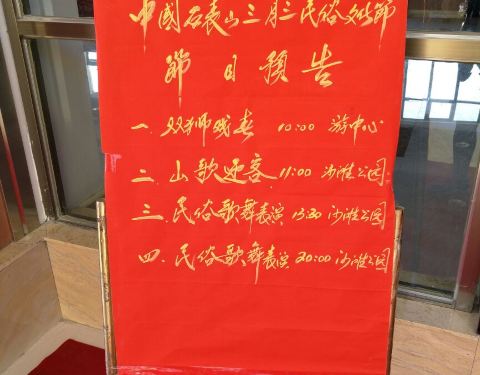 中國石表山三月三民俗文化節
節目預告
一.双狮戏春 10:00 游中心
二.山歌迎客 11:00 沙滩公园
三.民俗歌舞表演 15:30 沙滩公园
四.民俗歌舞表演 20:00 沙滩公园